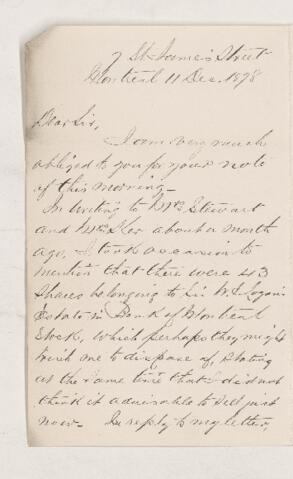 7 St James's Street
Montreal 11 Dec. 1878
Dear Sir,
I am very much
obliged to you for your note
of this morning -
In writing to Mrs Stewart
and Mrs Ker about a month
ago, I took occasion to
mention that there were 43
Shares belonging to Sir W. E. Logan's
Estate in Bank of Montreal
Stock, which perhaps they might
wish me to dispose of, Stating
at the same time that I did not
think it advisable to sell just
now - In reply to my letter,